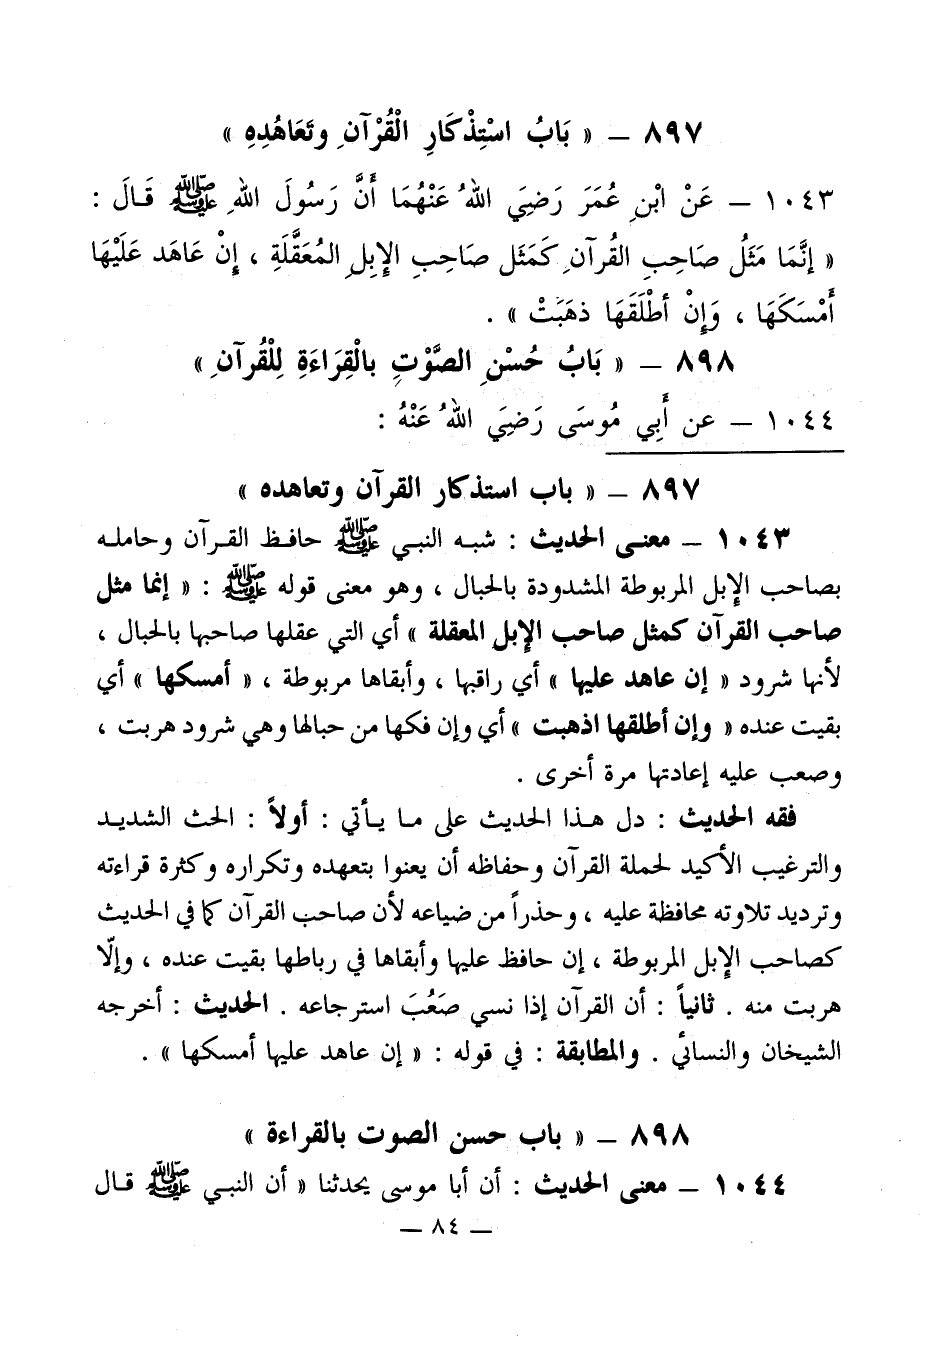 ٨٩٧ — « بَابُ اسْتِذْكَارِ الْقُرْآنِ وتَعَاهُدِهِ »
١٠٤٣ — عَنْ ابْنِ عُمَرَ رَضِيَ اللهُ عَنْهُمَا أَنَّ رَسُولَ اللهِ ﷺ قَالَ :
« إنَّمَا مَثَلُ صَاحِبِ القُرآنِ كَمَثَل صَاحِبِ الإِبِلِ المُعَقَّلَةِ ، إنْ عَاهَد عَلَيْهَا
أَمْسَكَهَا ، وَإِنْ أطْلَقَهَا ذهَبَتْ » .
٨٩٨ — « بَابُ حُسْنِ الصَّوْتِ بالْقِرَاءَةِ لِلْقُرآنِ »
١٠٤٤ — عن أَبِي مُوسَى رَضِيَ اللهُ عَنْهُ :
٨٩٧ — « باب استذكار القرآن وتعاهده »
١٠٤٣ — معنى الحديث : شبه النبي ﷺ حافظ القرآن وحامله
بصاحب الإِبل المربوطة المشدودة بالحبال ، وهو معنى قوله ﷺ : « إنما مثل
صاحب القرآن كمثل صاحب الإِبل المعقلة » أي التي عقلها صاحبها بالحبال ،
لأنها شرود « إن عاهد عليها » أي راقبها ، وأبقاها مربوطة ، « أمسكها » أي
بقيت عنده « وإن أطلقها اذهبت » أي وإن فكها من حبالها وهي شرود هربت ،
وصعب عليه إعادتها مرة أخرى .
فقه الحديث : دل هذا الحديث على ما يأتي : أولاً : الحث الشديد
والترغيب الأكيد لحملة القرآن وحفاظه أن يعنوا بتعهده وتكراره وكثرة قراءته
وترديد تلاوته محافظة عليه ، وحذراً من ضياعه لأن صاحب القرآن كما في الحديث
كصاحب الإِبل المربوطة ، إن حافظ عليها وأبقاها في رباطها بقيت عنده ، وإلّا
هربت منه . ثانياً : أن القرآن إذا نسي صَعُبَ استرجاعه . الحديث : أخرجه
الشيخان والنسائي . والمطابقة : في قوله : « إن عاهد عليها أمسكها » .
٨٩٨ — « باب حسن الصوت بالقراءة »
١٠٤٤ — معنى الحديث : أن أبا موسى يحدثنا « أن النبي ﷺ قال
— ٨٤ —